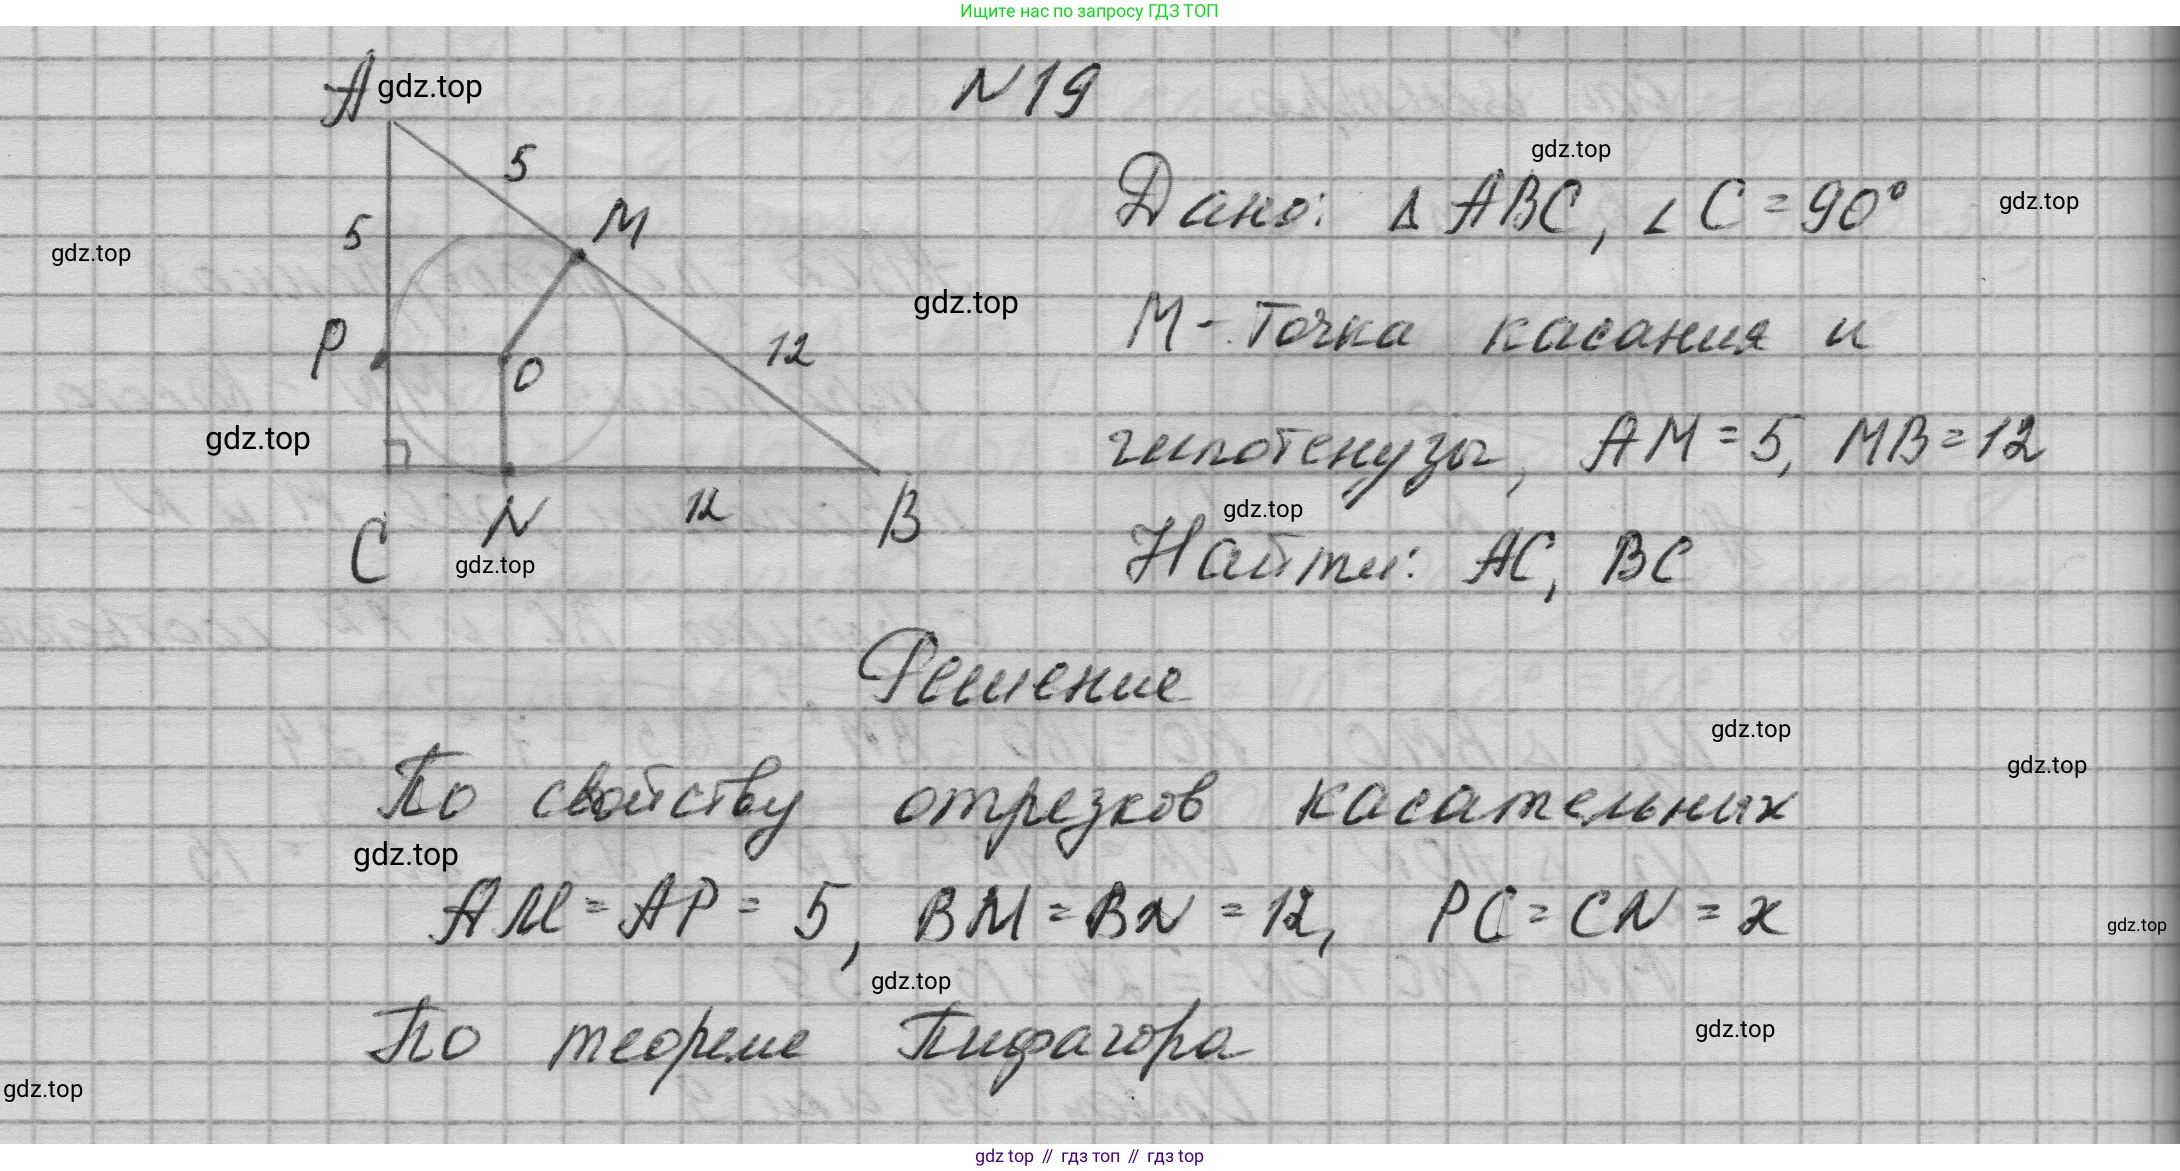 Ищите нас по запросу ГДЗ ТОП
A gdz.top
N19
5
gdz.top
Дано: Δ ABC, ∠ C = 90°
gdz.top
M
5
gdz.top
gdz.top
M - точка касания и
P
O
12
gdz.top
гипотенузы, AM = 5, MB = 12
C
N
12
B
gdz.top
gdz.top
Найти: AC, BC
Решение
gdz.top
gdz.top
По свойству отрезков касательных
gdz.top
AM = AP = 5, BM = BN = 12, PC = CN = x
gdz.top
gdz.top
По теореме Пифагора
gdz.top
gdz.top
gdz top // гдз топ // гдз top